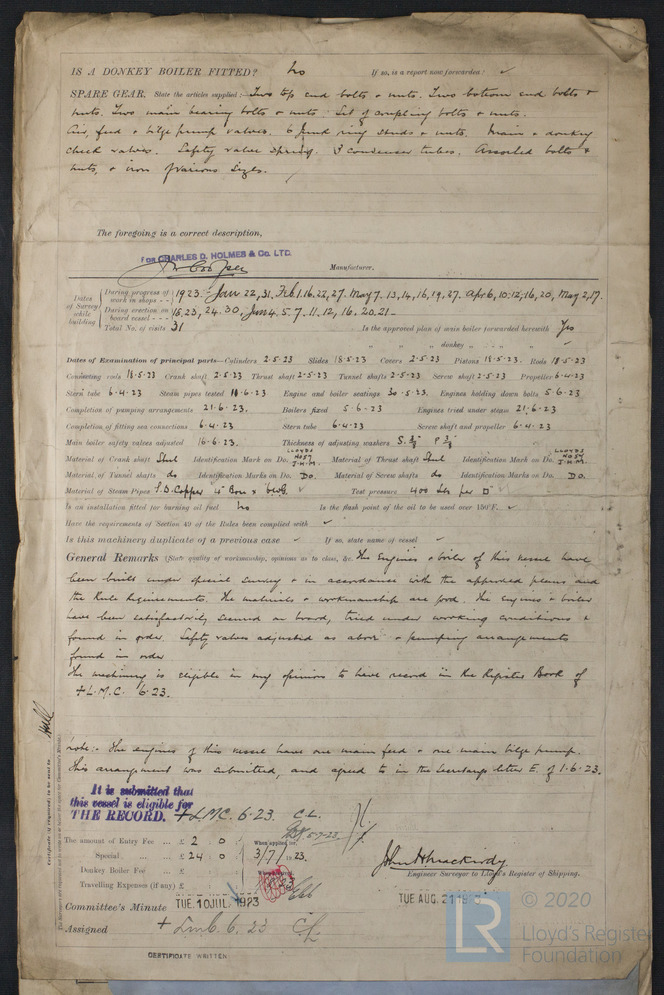 IS A DONKEY BOILER FITTED? No If so, is a report now forwarded? ✓
SPARE GEAR. State the articles supplied:— Two top end bolts + nuts. Two bottom end bolts +
nuts. Two main bearing bolts + nuts. Set of coupling bolts + nuts.
Air, feed + bilge pump valves. 6 junk ring studs + nuts. Main + donkey
check valves. Safety valve spring. 3 condenser tubes. Assorted bolts +
nuts, + iron of various sizes.
The foregoing is a correct description,
FOR CHARLES D. HOLMES & Co. LTD.
Manufacturer.
Dates of Survey while building
During progress of work in shops -- 1923. Jan 22, 31, Feb 1. 16. 22, 27. May 7. 13, 14, 16, 19, 27. Apr 6, 10, 12, 16, 20, May 2, 17.
During erection on board vessel --- 18, 23, 24. 30, June 4. 5. 7. 11, 12, 16. 20. 21 —
Total No. of visits 31 Is the approved plan of main boiler forwarded herewith Yes
" " " donkey " " " ✓
Dates of Examination of principal parts—Cylinders 2.5.23 Slides 18.5.23 Covers 2.5.23 Pistons 18.5.23. Rods 18.5.23
Connecting rods 18.5.23 Crank shaft 2.5.23 Thrust shaft 2.5.23 Tunnel shafts 2.5.23 Screw shaft 2.5.23 Propeller 6.4.23
Stern tube 6.4.23 Steam pipes tested 18.6.23 Engine and boiler seatings 30.5.23. Engines holding down bolts 5.6.23
Completion of pumping arrangements 21.6.23. Boilers fixed 5.6.23 Engines tried under steam 21.6.23
Completion of fitting sea connections 6.4.23 Stern tube 6.4.23 Screw shaft and propeller 6.4.23
Main boiler safety valves adjusted 16.6.23. Thickness of adjusting washers S. 3/8" P 3/8"
Material of Crank shaft Steel Identification Mark on Do. LLOYDS No 57 J.H.M. Material of Thrust shaft Steel Identification Mark on Do. LLOYDS No 57 J.H.M.
Material of Tunnel shafts do Identification Marks on Do. Do. Material of Screw shafts do Identification Marks on Do. Do.
Material of Steam Pipes S.D. Copper 4" Bore x 6 WG. ✓ Test pressure 400 lbs per □"
Is an installation fitted for burning oil fuel No Is the flash point of the oil to be used over 150°F. ✓
Have the requirements of Section 49 of the Rules been complied with ✓
Is this machinery duplicate of a previous case ✓ If so, state name of vessel ✓
General Remarks (State quality of workmanship, opinions as to class, &c. The Engines + boiler of this vessel have
been built under special survey + in accordance with the approved plans and
the Rule Requirements. The materials + workmanship are good. The engines + boiler
have been satisfactorily secured on board, tried under working conditions +
found in order. Safety valves adjusted as above + pumping arrangements
found in order
The machinery is eligible in my opinion to have record in the Register Book of
+ L.M.C. 6.23.
Note:- The engines of this vessel have one main feed + one main bilge pump.
This arrangement was submitted, and agreed to in the Secretarys letter E. of 1.6.23.
It is submitted that
this vessel is eligible for
THE RECORD. + LMC. 6.23. C.L.
5.7.23
The amount of Entry Fee ... £ 2 : 0 When applied for,
Special ... ... £ 24 : 0 3/7/1923.
Donkey Boiler Fee ... £
Travelling Expenses (if any) £
John H Mackirdy
Engineer Surveyor to Lloyd's Register of Shipping.
Committee's Minute TUE. 10 JUL. 1923 TUE AUG. 21 1923
Assigned + LMC. 6. 23 C.L.
CERTIFICATE WRITTEN
Hull
© 2020
LR
Lloyd's Register
Foundation